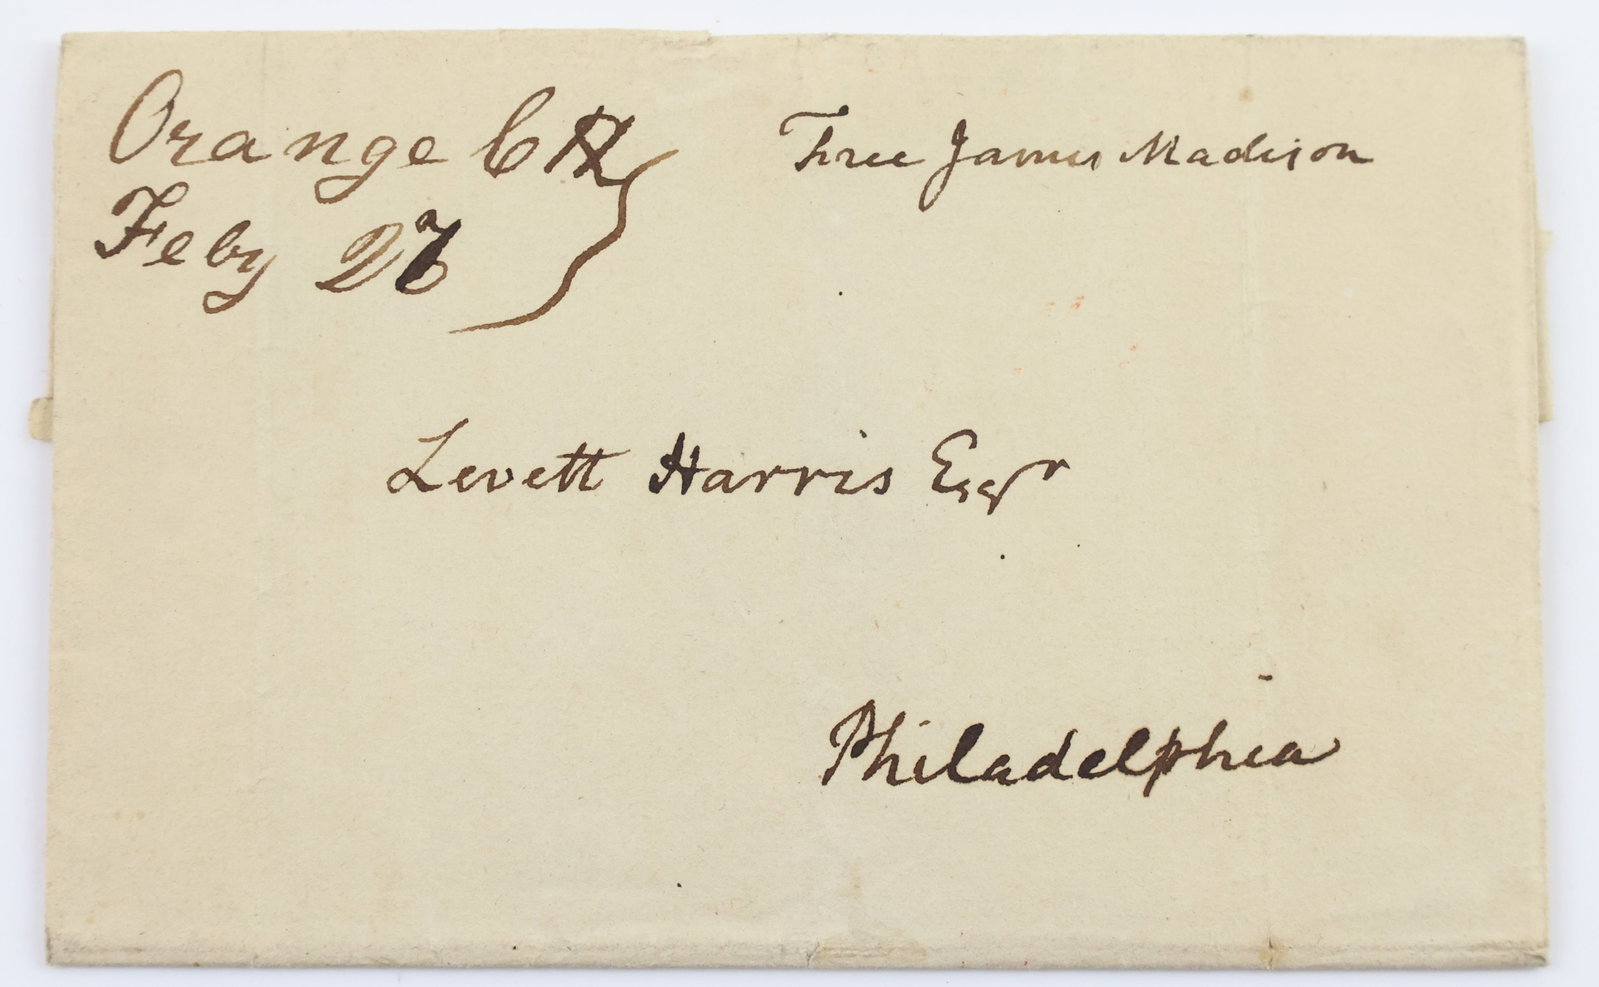 Orange CH
Feby 27
Free James Madison
Levett Harris Esqr
Philadelphia